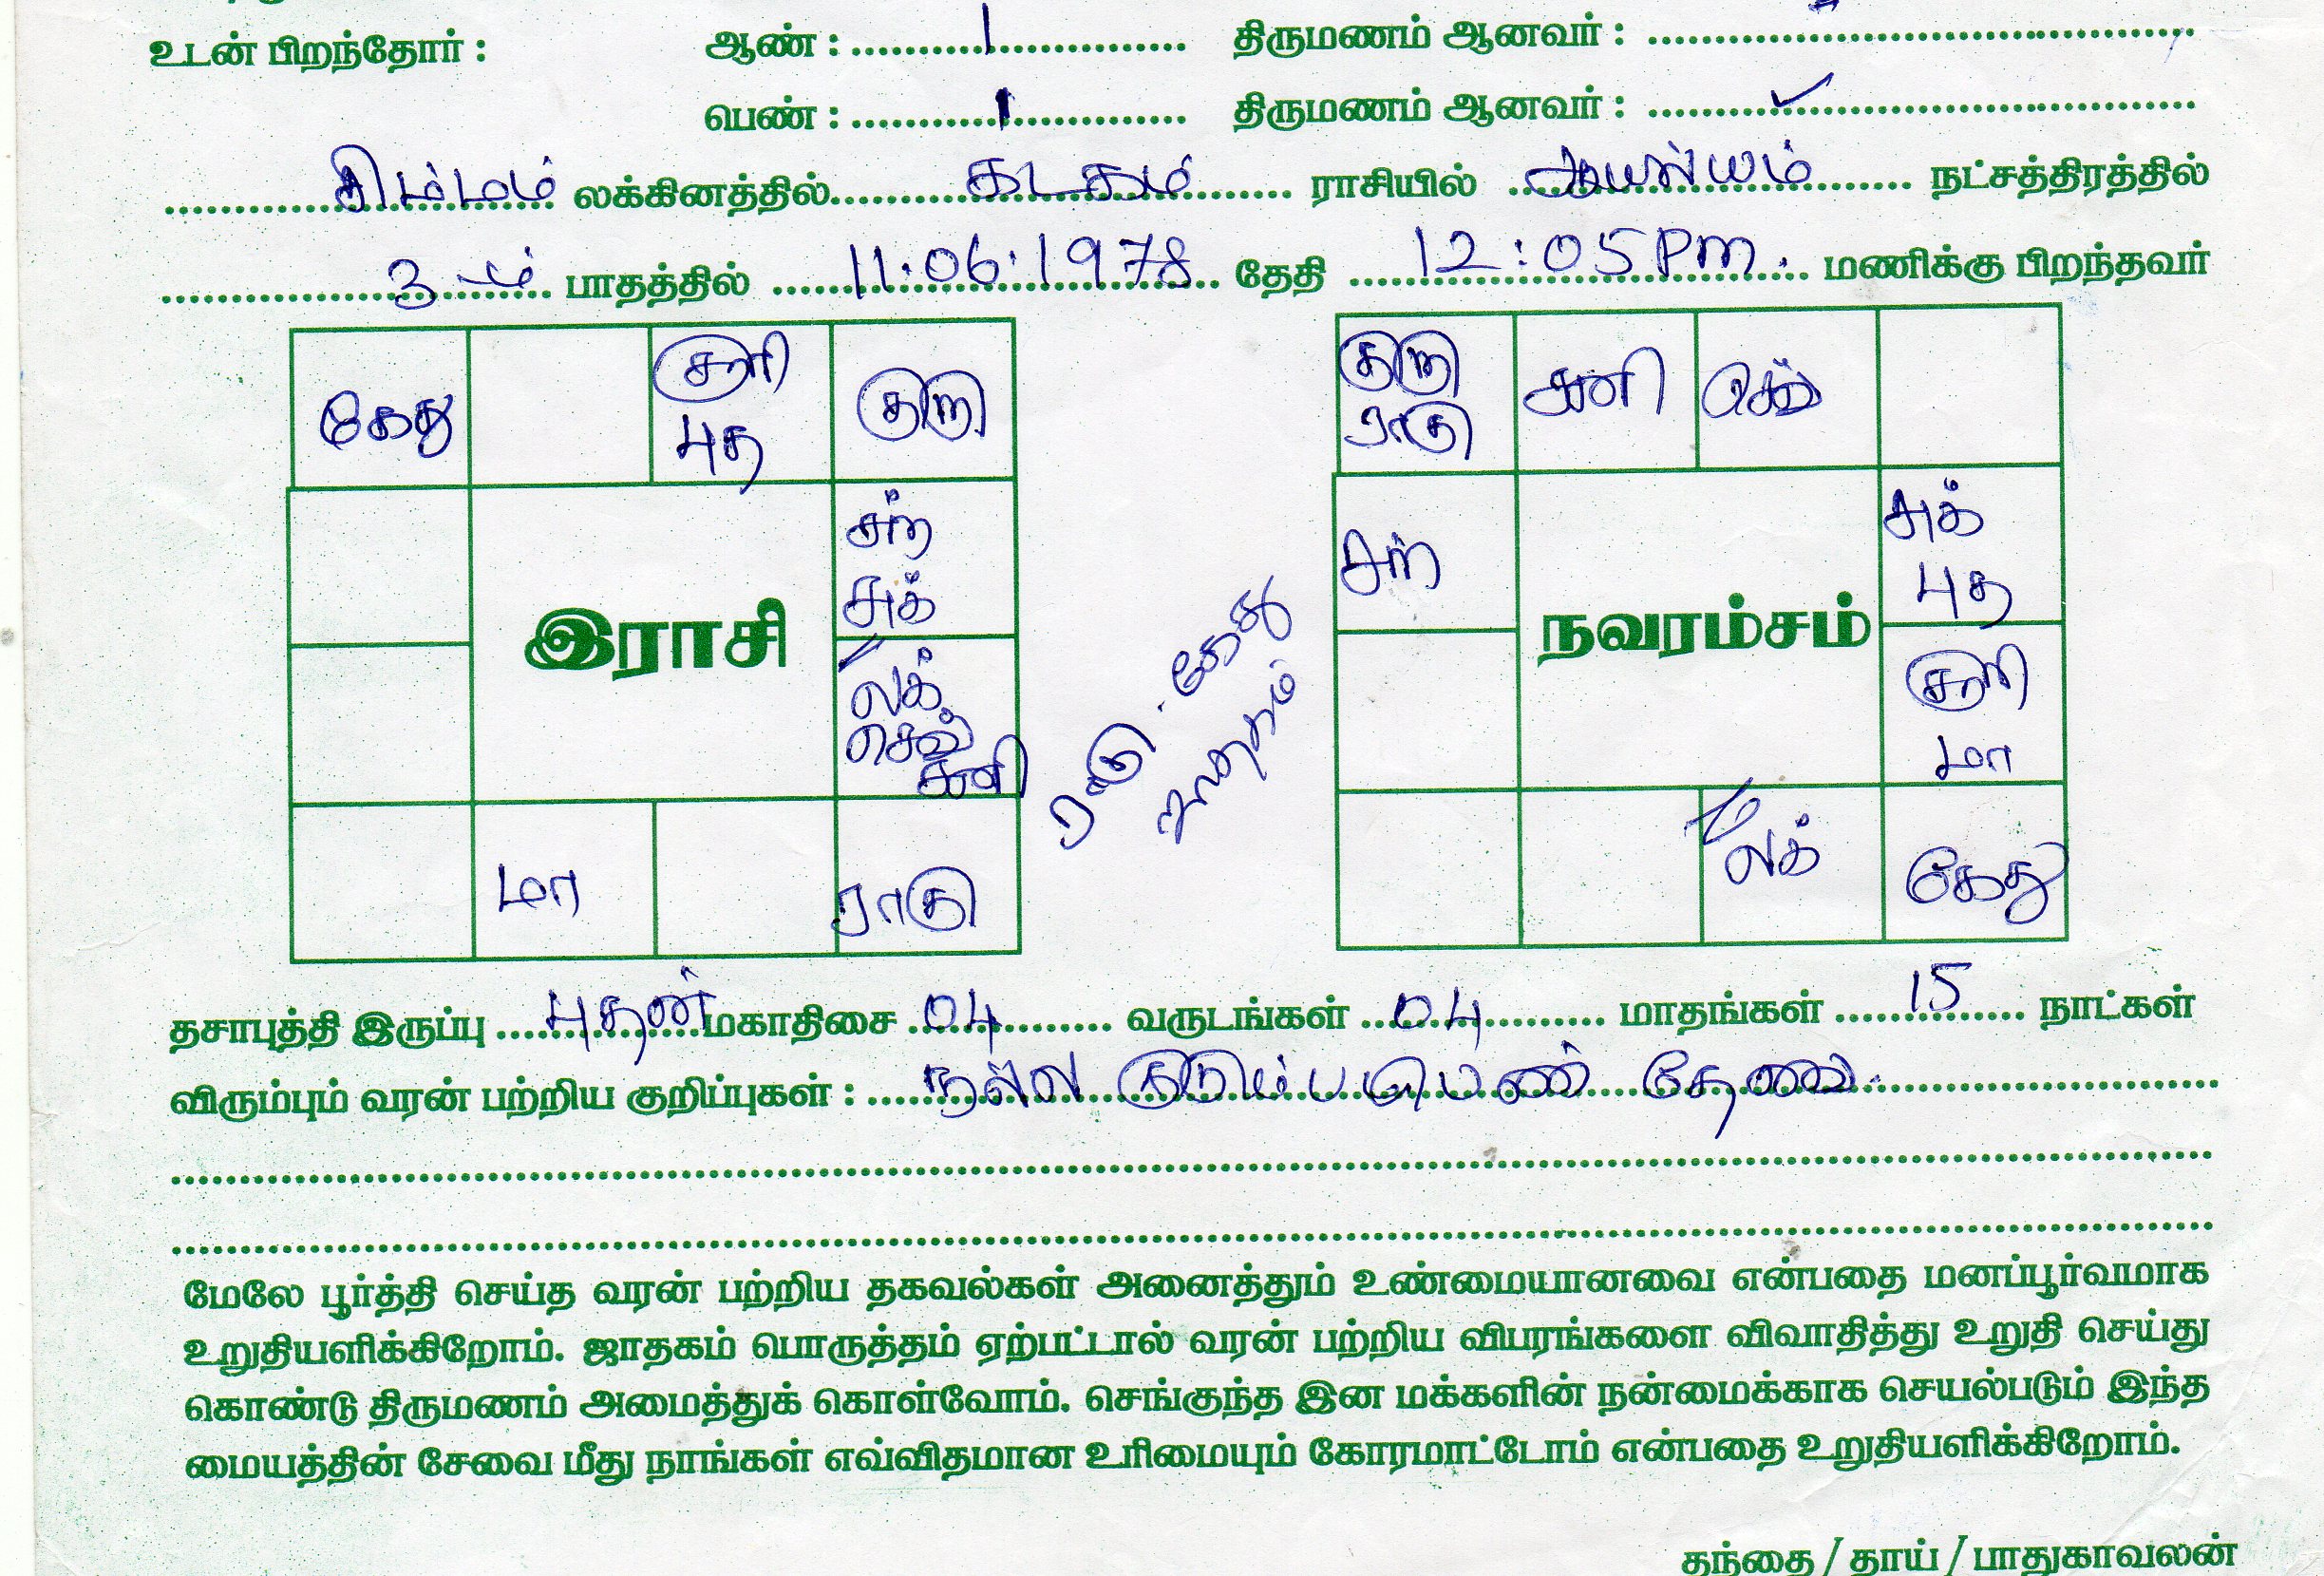 உடன் பிறந்தோர் : ஆண் : 1 திருமணம் ஆனவர் :
பெண் : 1 திருமணம் ஆனவர் : ✓
சிம்மம் லக்கினத்தில் கடகம் ராசியில் ஆயில்யம் நட்சத்திரத்தில்
3 ம் பாதத்தில் 11.06.1978 தேதி 12:05 Pm. மணிக்கு பிறந்தவர்
கேது
சூரி
புத
குரு
சந்
சுக்
லக்
செவ்
சனி
இராசி
மா
ராகு
ராகு. கேது
குரு
ராகு
சனி
செவ்
சந்
சுக்
புத
நவரம்சம்
சூரி
மா
லக்
கேது
தசாபுத்தி இருப்பு புதன் மகாதிசை 04 வருடங்கள் 04 மாதங்கள் 15 நாட்கள்
விரும்பும் வரன் பற்றிய குறிப்புகள் : நல்ல குடும்ப பெண் தேவை.
மேலே பூர்த்தி செய்த வரன் பற்றிய தகவல்கள் அனைத்தும் உண்மையானவை என்பதை மனப்பூர்வமாக
உறுதியளிக்கிறோம். ஜாதகம் பொருத்தம் ஏற்பட்டால் வரன் பற்றிய விபரங்களை விவாதித்து உறுதி செய்து
கொண்டு திருமணம் அமைத்துக் கொள்வோம். செங்குந்த இன மக்களின் நன்மைக்காக செயல்படும் இந்த
மையத்தின் சேவை மீது நாங்கள் எவ்விதமான உரிமையும் கோரமாட்டோம் என்பதை உறுதியளிக்கிறோம்.
தந்தை / தாய் / பாதுகாவலன்